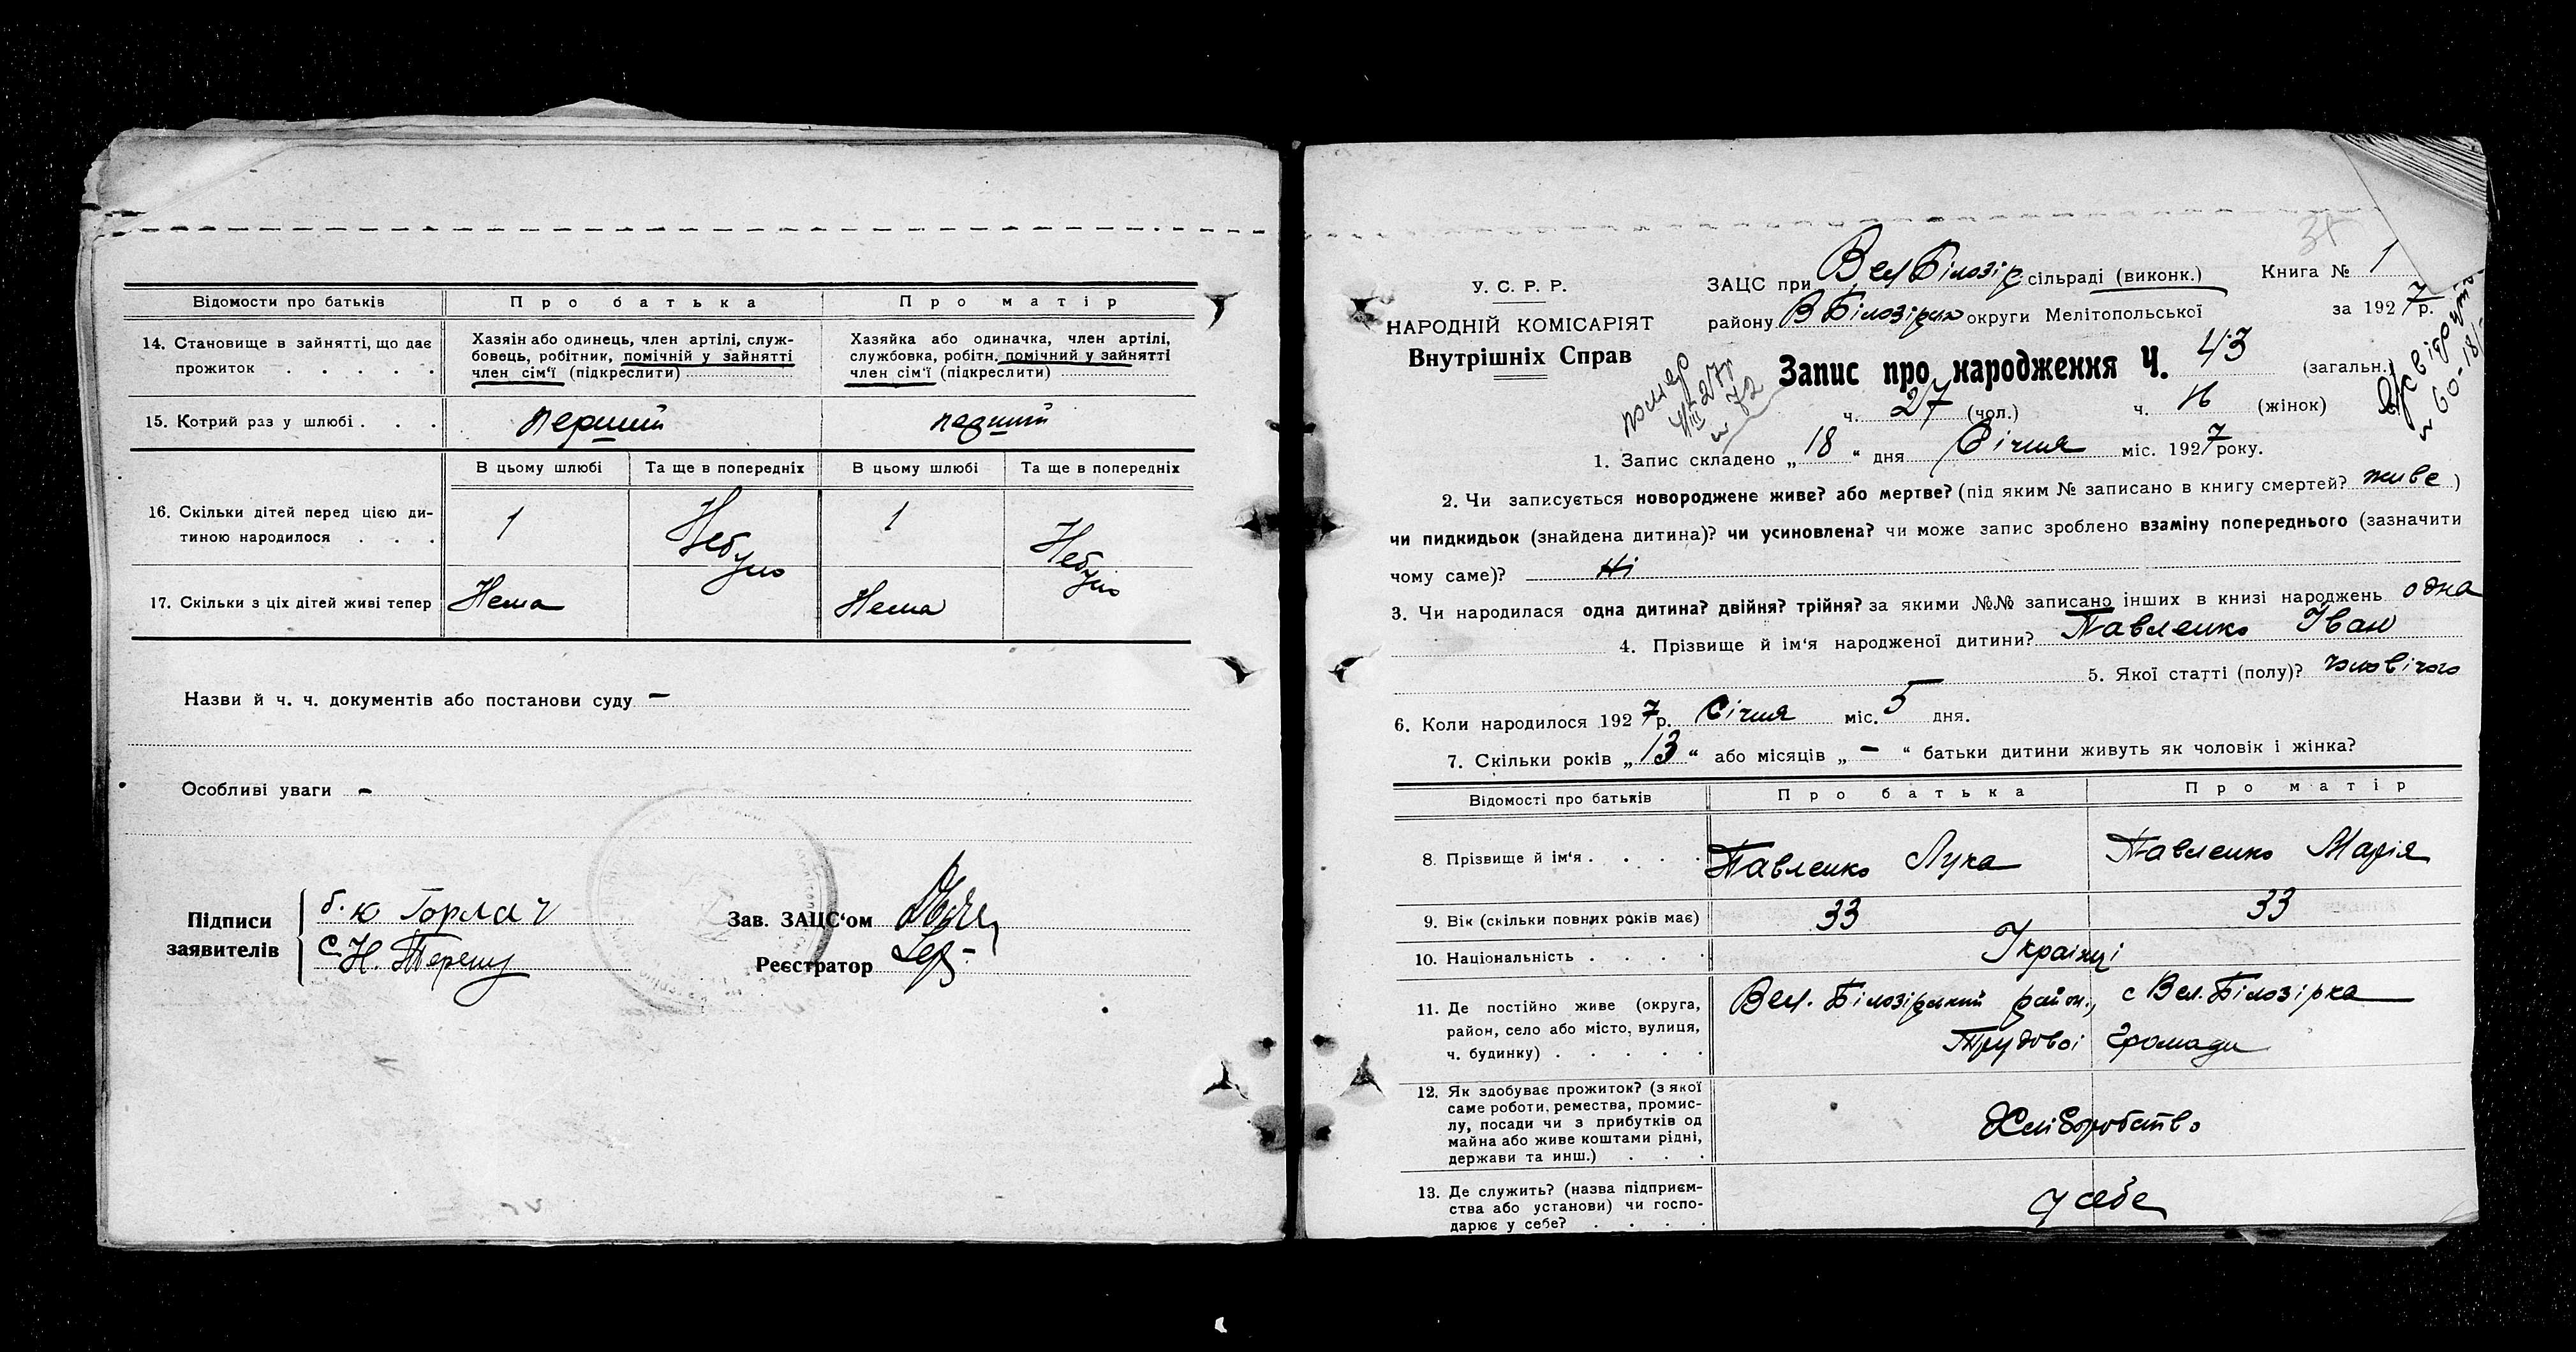 Відомости про батьків
Про батька
Про матір
14. Становище в зайнятті, що дає прожиток . . . . .
Хазяін або одинець, член артілі, служ-
бовець, робітник, помічній у зайнятті
член сім'ї (підкреслити)
Хазяйка або одиначка, член артілі,
службовка, робітн. помічний у зайнятті
член сім'ї (підкреслити)
15. Котрий раз у шлюбі . . .
перший
перший
В цьому шлюбі
Та ще в попередніх
В цьому шлюбі
Та ще в попередніх
16. Скільки дітей перед цією ди-
тиною народилося . . .
1
Небуло
1
Небуло
17. Скільки з ціх дітей живі тепер
Нема
Нема
Назви й ч. ч. документів або постанови суду —
Особливі уваги —
Підписи
заявителів
б. ю Горлач
С. Н. Терещ
Зав. ЗАЦС'ом
Реєстратор
У. С. Р. Р.
НАРОДНІЙ КОМІСАРІЯТ
Внутрішніх Справ
ЗАЦС при Вел Білозір сільраді (виконк.)
Книга № 1
району В Білозірск округи Мелітопольської
за 1927 р.
Запис про народження Ч. 43 (загальн.)
ч. 27 (чол.) ч. 16 (жінок)
помер
27р
72
1. Запис складено „ 18 “ дня Січня міс. 1927 року.
2. Чи записується новороджене живе? або мертве? (під яким № записано в книгу смертей? живе )
чи пидкидьок (знайдена дитина)? чи усиновлена? чи може запис зроблено взаміну попереднього (зазначити
чому саме)? Ні
3. Чи народилася одна дитина? двійня? трійня? за якими №№ записано інших в книзі народжень одна
4. Прізвище й ім'я народженої дитини? Павленко Іван
5. Якої статті (полу)? чоловічого
6. Коли народилося 1927 р. Січня міс. 5 дня.
7. Скільки років „ 13 “ або місяців „ — “ батьки дитини живуть як чоловік і жінка?
Відомості про батьків
Про батька
Про матір
8. Прізвище й ім'я . . . .
Павленко Лука
Павленко Марія
9. Вік (скільки повних років має)
33
33
10. Національність . . . .
Українці
11. Де постійно живе (округа,
район, село або місто, вулиця,
ч. будинку) . . . . .
Вел. Білозірський район., с Вел. Білозірка
Трудової громади
12. Як здобуває прожиток? (з якої
саме роботи, ремества, промис-
лу, посади чи з прибутків од
майна або живе коштами рідні,
держави та инш.) . . .
Хліборобство
13. Де служить? (назва підприєм-
ства або установи) чи госпо-
дарює у себе? . . . .
у себе